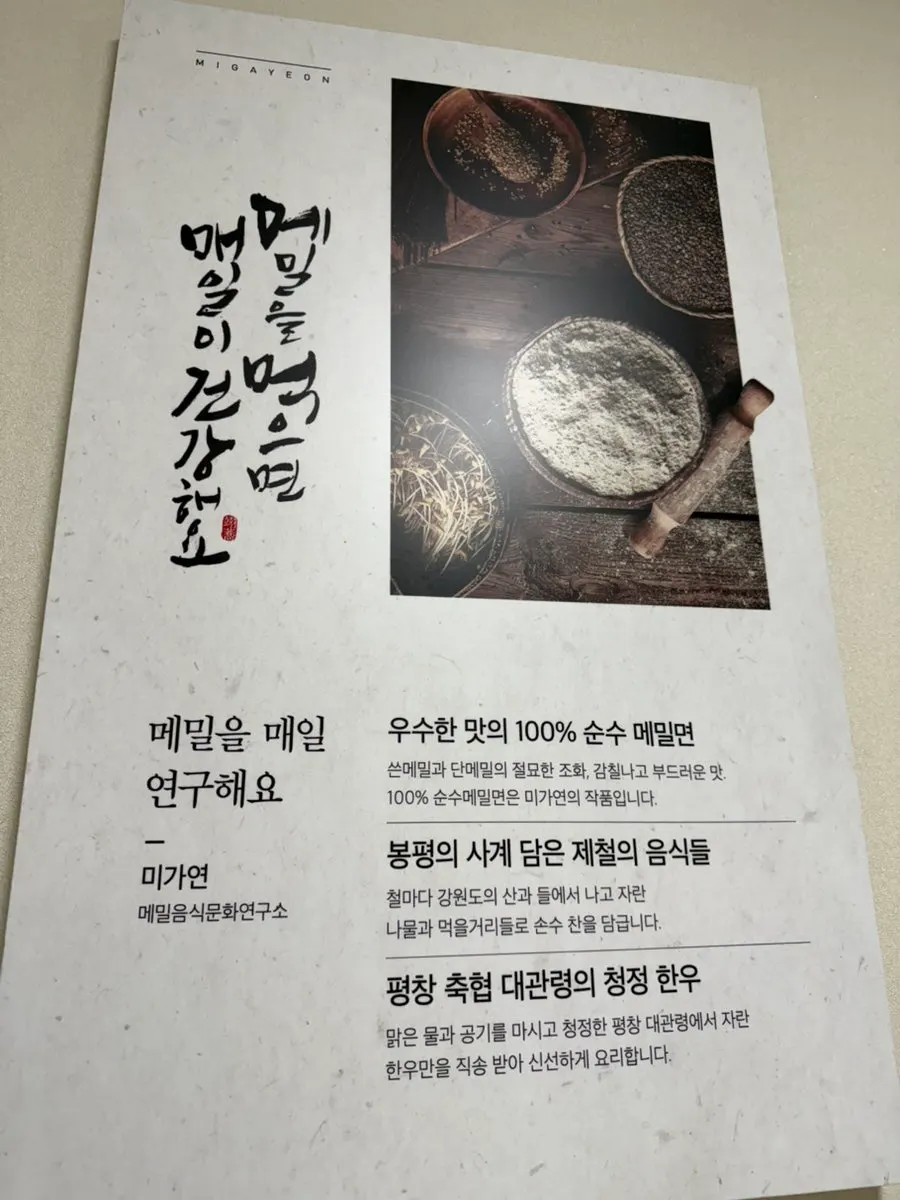 MIGAYEON
메밀을 먹으면
매일이 건강해요
메밀을 매일
연구해요
미가연
메밀음식문화연구소
우수한 맛의 100% 순수 메밀면
쓴메밀과 단메밀의 절묘한 조화, 감칠나고 부드러운 맛.
100% 순수메밀면은 미가연의 작품입니다.
봉평의 사계 담은 제철의 음식들
철마다 강원도의 산과 들에서 나고 자란
나물과 먹을거리들로 손수 찬을 담급니다.
평창 축협 대관령의 청정 한우
맑은 물과 공기를 마시고 청정한 평창 대관령에서 자란
한우만을 직송 받아 신선하게 요리합니다.